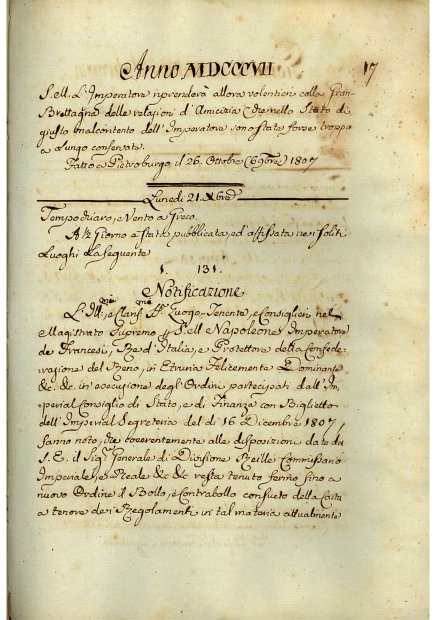 Anno MDCCCVII
17
S. M. L'Imperatore riprenderà allora volentieri colla Gran-
Brettagna delle relazioni d'Amicizia che nello Stato di
giusto malcontento dell'Imperatore sono state forse troppo
a Lungo conservate.
Fatto a Pietroburgo il 26. Ottobre (6 9bre) 1807
Lunedi 21. Xbre
Tempo chiaro, e Vento a Greco.
A Giorno è stata pubblicata, ed affissata nei soliti
Luoghi La seguente
131.
Notificazione
L'Ill. e Clariss. Luogo-Tenente, e Consiglieri nel
Magistrato Supremo p. S. M. Napoleone Imperatore
de Francesi, Re d'Italia, e Protettore della Confede-
razione del Reno, in Etruria Felicemente Dominante
&c. &c. in esecuzione degl'Ordini partecipati dall'Im-
perial Consiglio di Stato, e di Finanze con Biglietto
dell'Imperial Segreteria del dì 16 Dicembre 1807,
fanno noto, che coerentemente alle disposizioni date da
S. E. il Sig. Generale di Divisione Reille Commissario
Imperiale, e Reale &c &c resta tenuto fermo fino a
nuovo Ordine il Bollo, e Contrabollo consueto della Carta
a tenore dei Regolamenti in tal materia attualmente